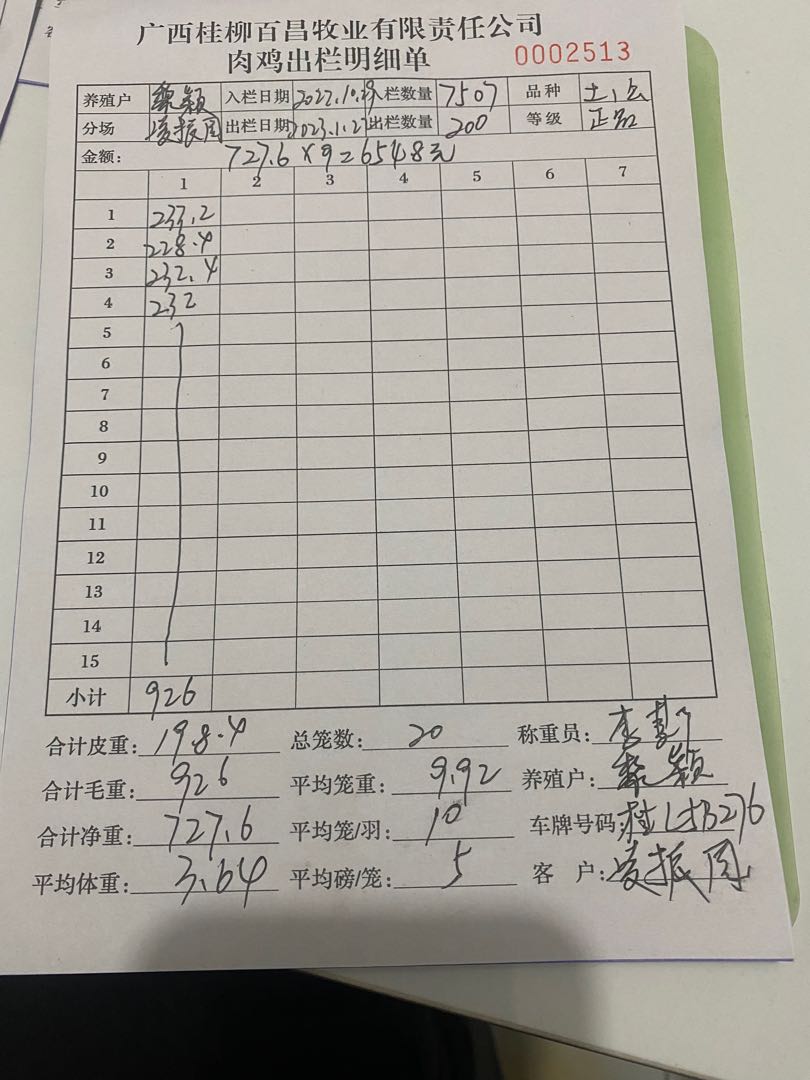 广西桂柳百昌牧业有限责任公司
肉鸡出栏明细单 0002513
养殖户 黎颖 入栏日期 2022.10.29 入栏数量 7507 品种 土
分场 凌振周 出栏日期 2023.1.27 出栏数量 200 等级 正品
金额: 727.6×9=6548元
1 2 3 4 5 6 7
1 233.2
2 228.4
3 232.4
4 232
5
6
7
8
9
10
11
12
13
14
15
小计 926
合计皮重: 198.4 总笼数: 20 称重员: 李
合计毛重: 926 平均笼重: 9.92 养殖户: 黎颖
合计净重: 727.6 平均笼/羽: 10 车牌号码: 桂L5B276
平均体重: 3.64 平均磅/笼: 5 客户: 凌振周